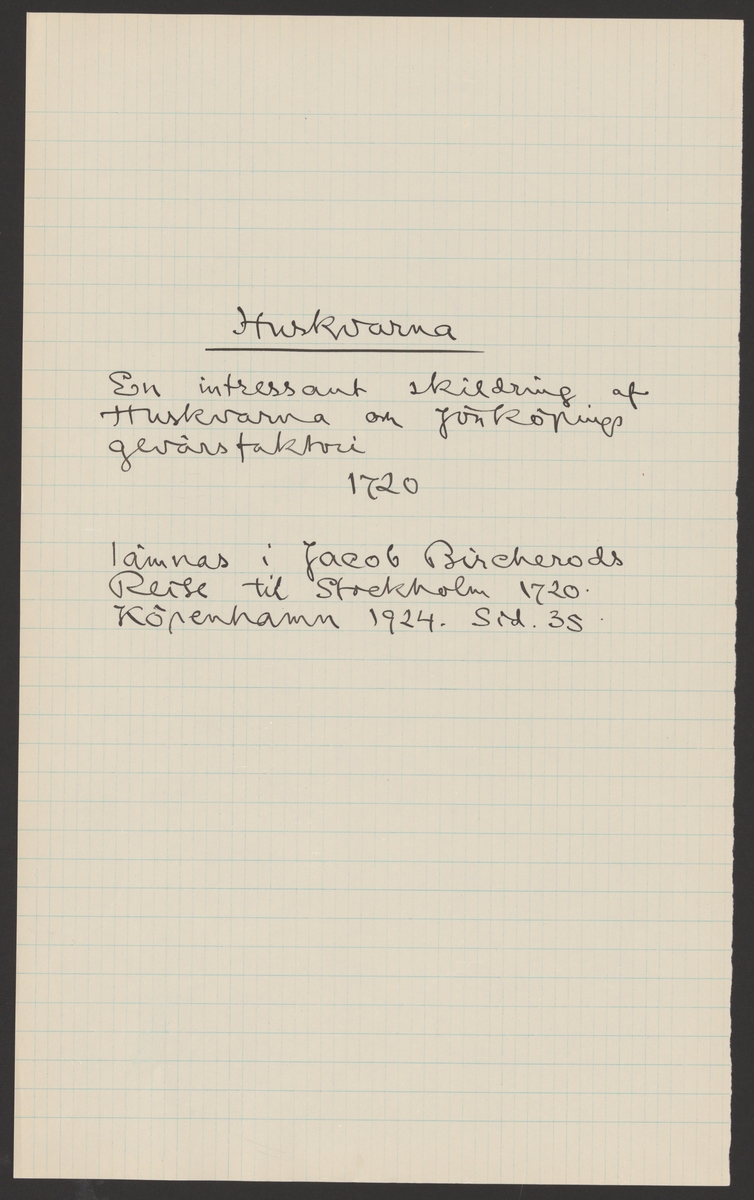 Huskvarna
En intressant skildring af
Huskvarna och Jönköpings
gevärsfaktori
1720
lämnas i Jacob Bircherods
Reise til Stockholm 1720.
Köpenhamn 1924. Sid. 35.